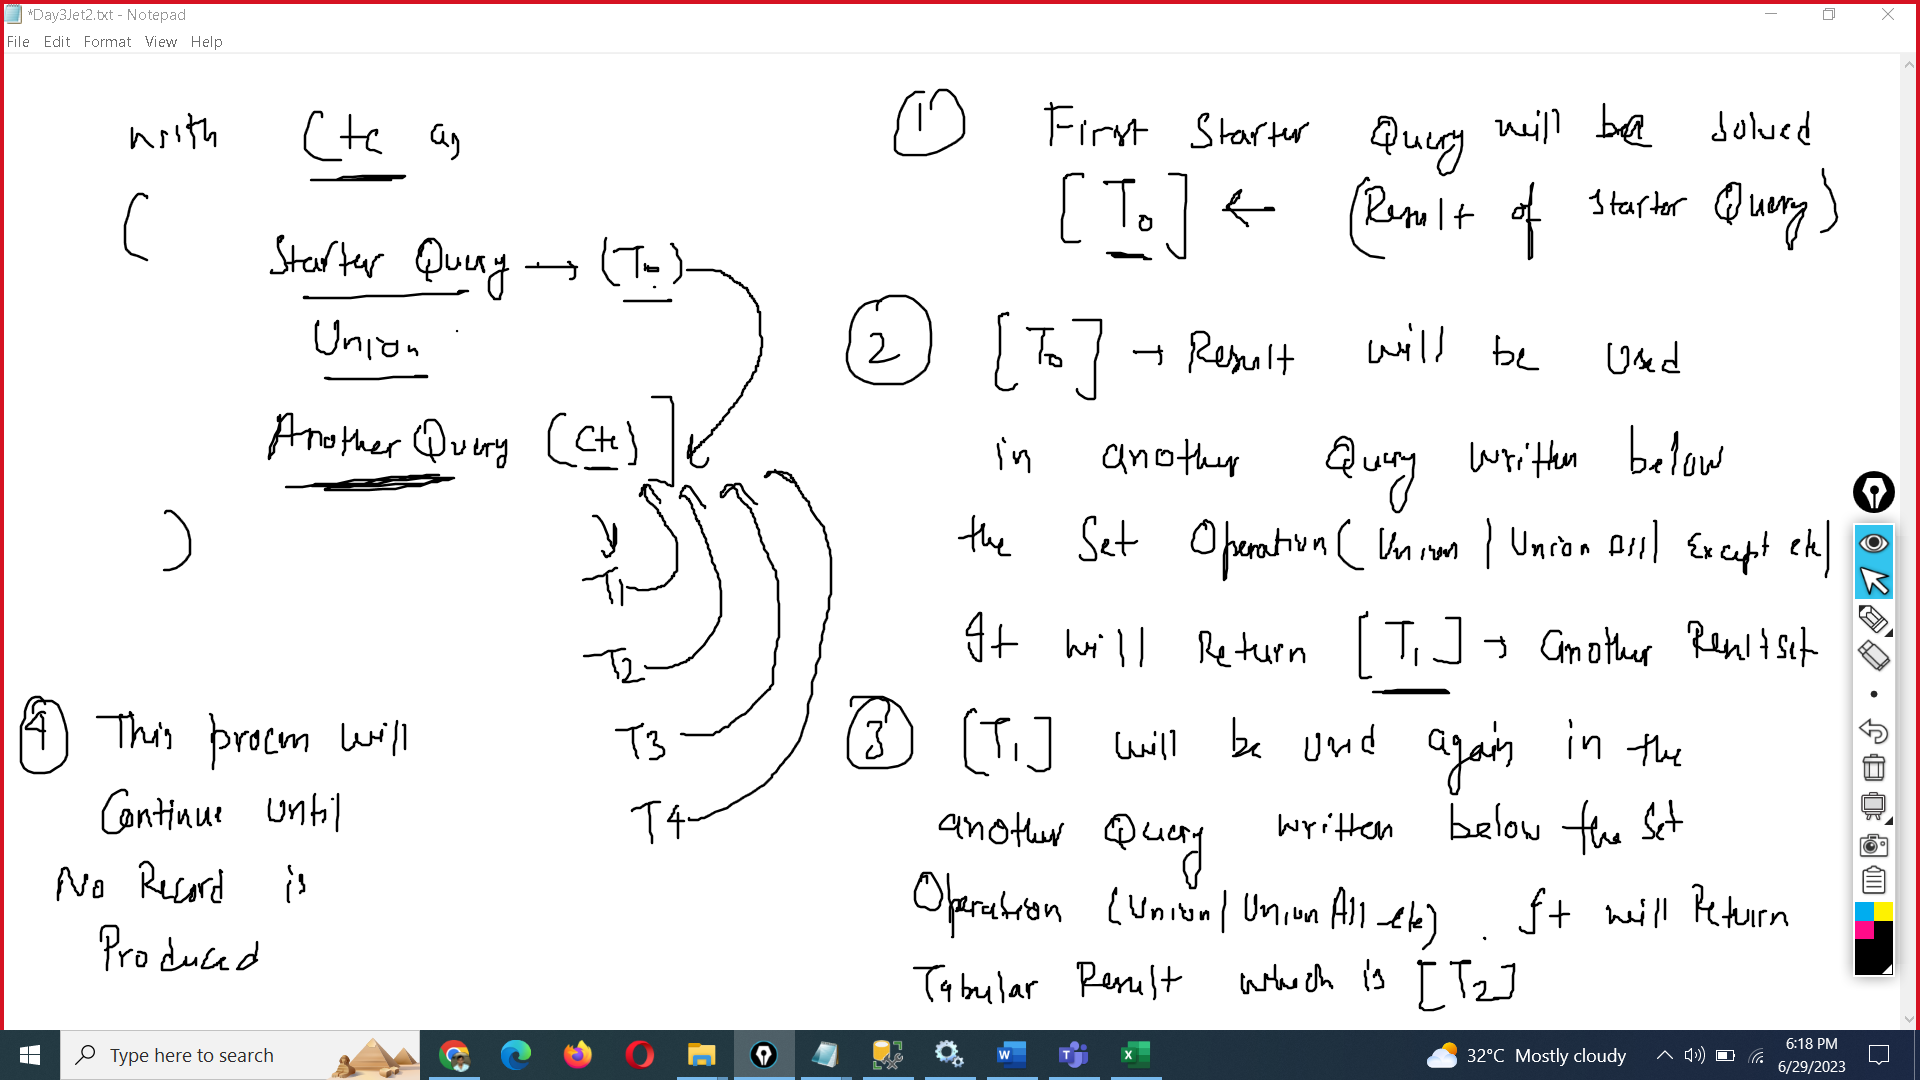 *Day3Jet2.txt - Notepad
File Edit Format View Help
with Cte as
(
Starter Query → (T0)
Union
Another Query (Cte)]
)
T1
T2
T3
T4
④ This process will
Continue Until
No Record is
Produced
① First Starter Query will be solved
[T0] ← (Result of Starter Query)
② [T0] → Result will be Used
in another Query written below
the Set Operation (Union | Union All | Except etc)
It will Return [T1] → another Resultset
③ [T1] will be used again in the
another Query written below the Set
Operation (Union | Union All etc). It will Return
Tabular Result which is [T2]
Type here to search
32°C Mostly cloudy
6:18 PM
6/29/2023